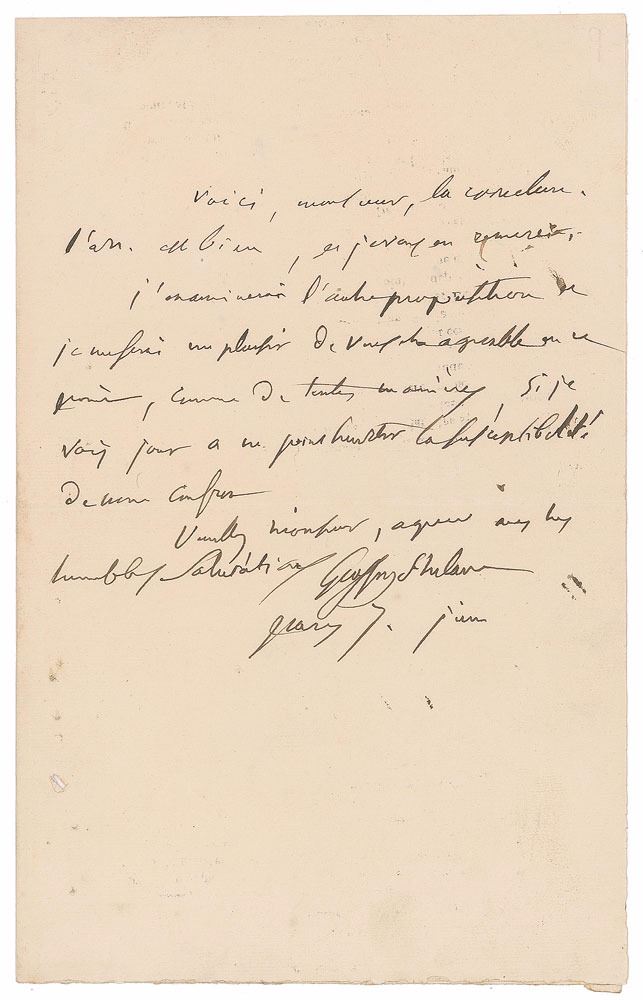 Voici, monsieur, la conclusion.
l'art. est bien, et je vous en remercie,
j'examinerai l'autre proposition et
je me ferai un plaisir de vous être agréable en ce
point, comme de toutes manières, si je
vois jour à ne point heurter la susceptibilité
de mon confrère
Veuillez monsieur, agréer mes très
humbles salutations Geoffroy St hilaire
paris 7. juin